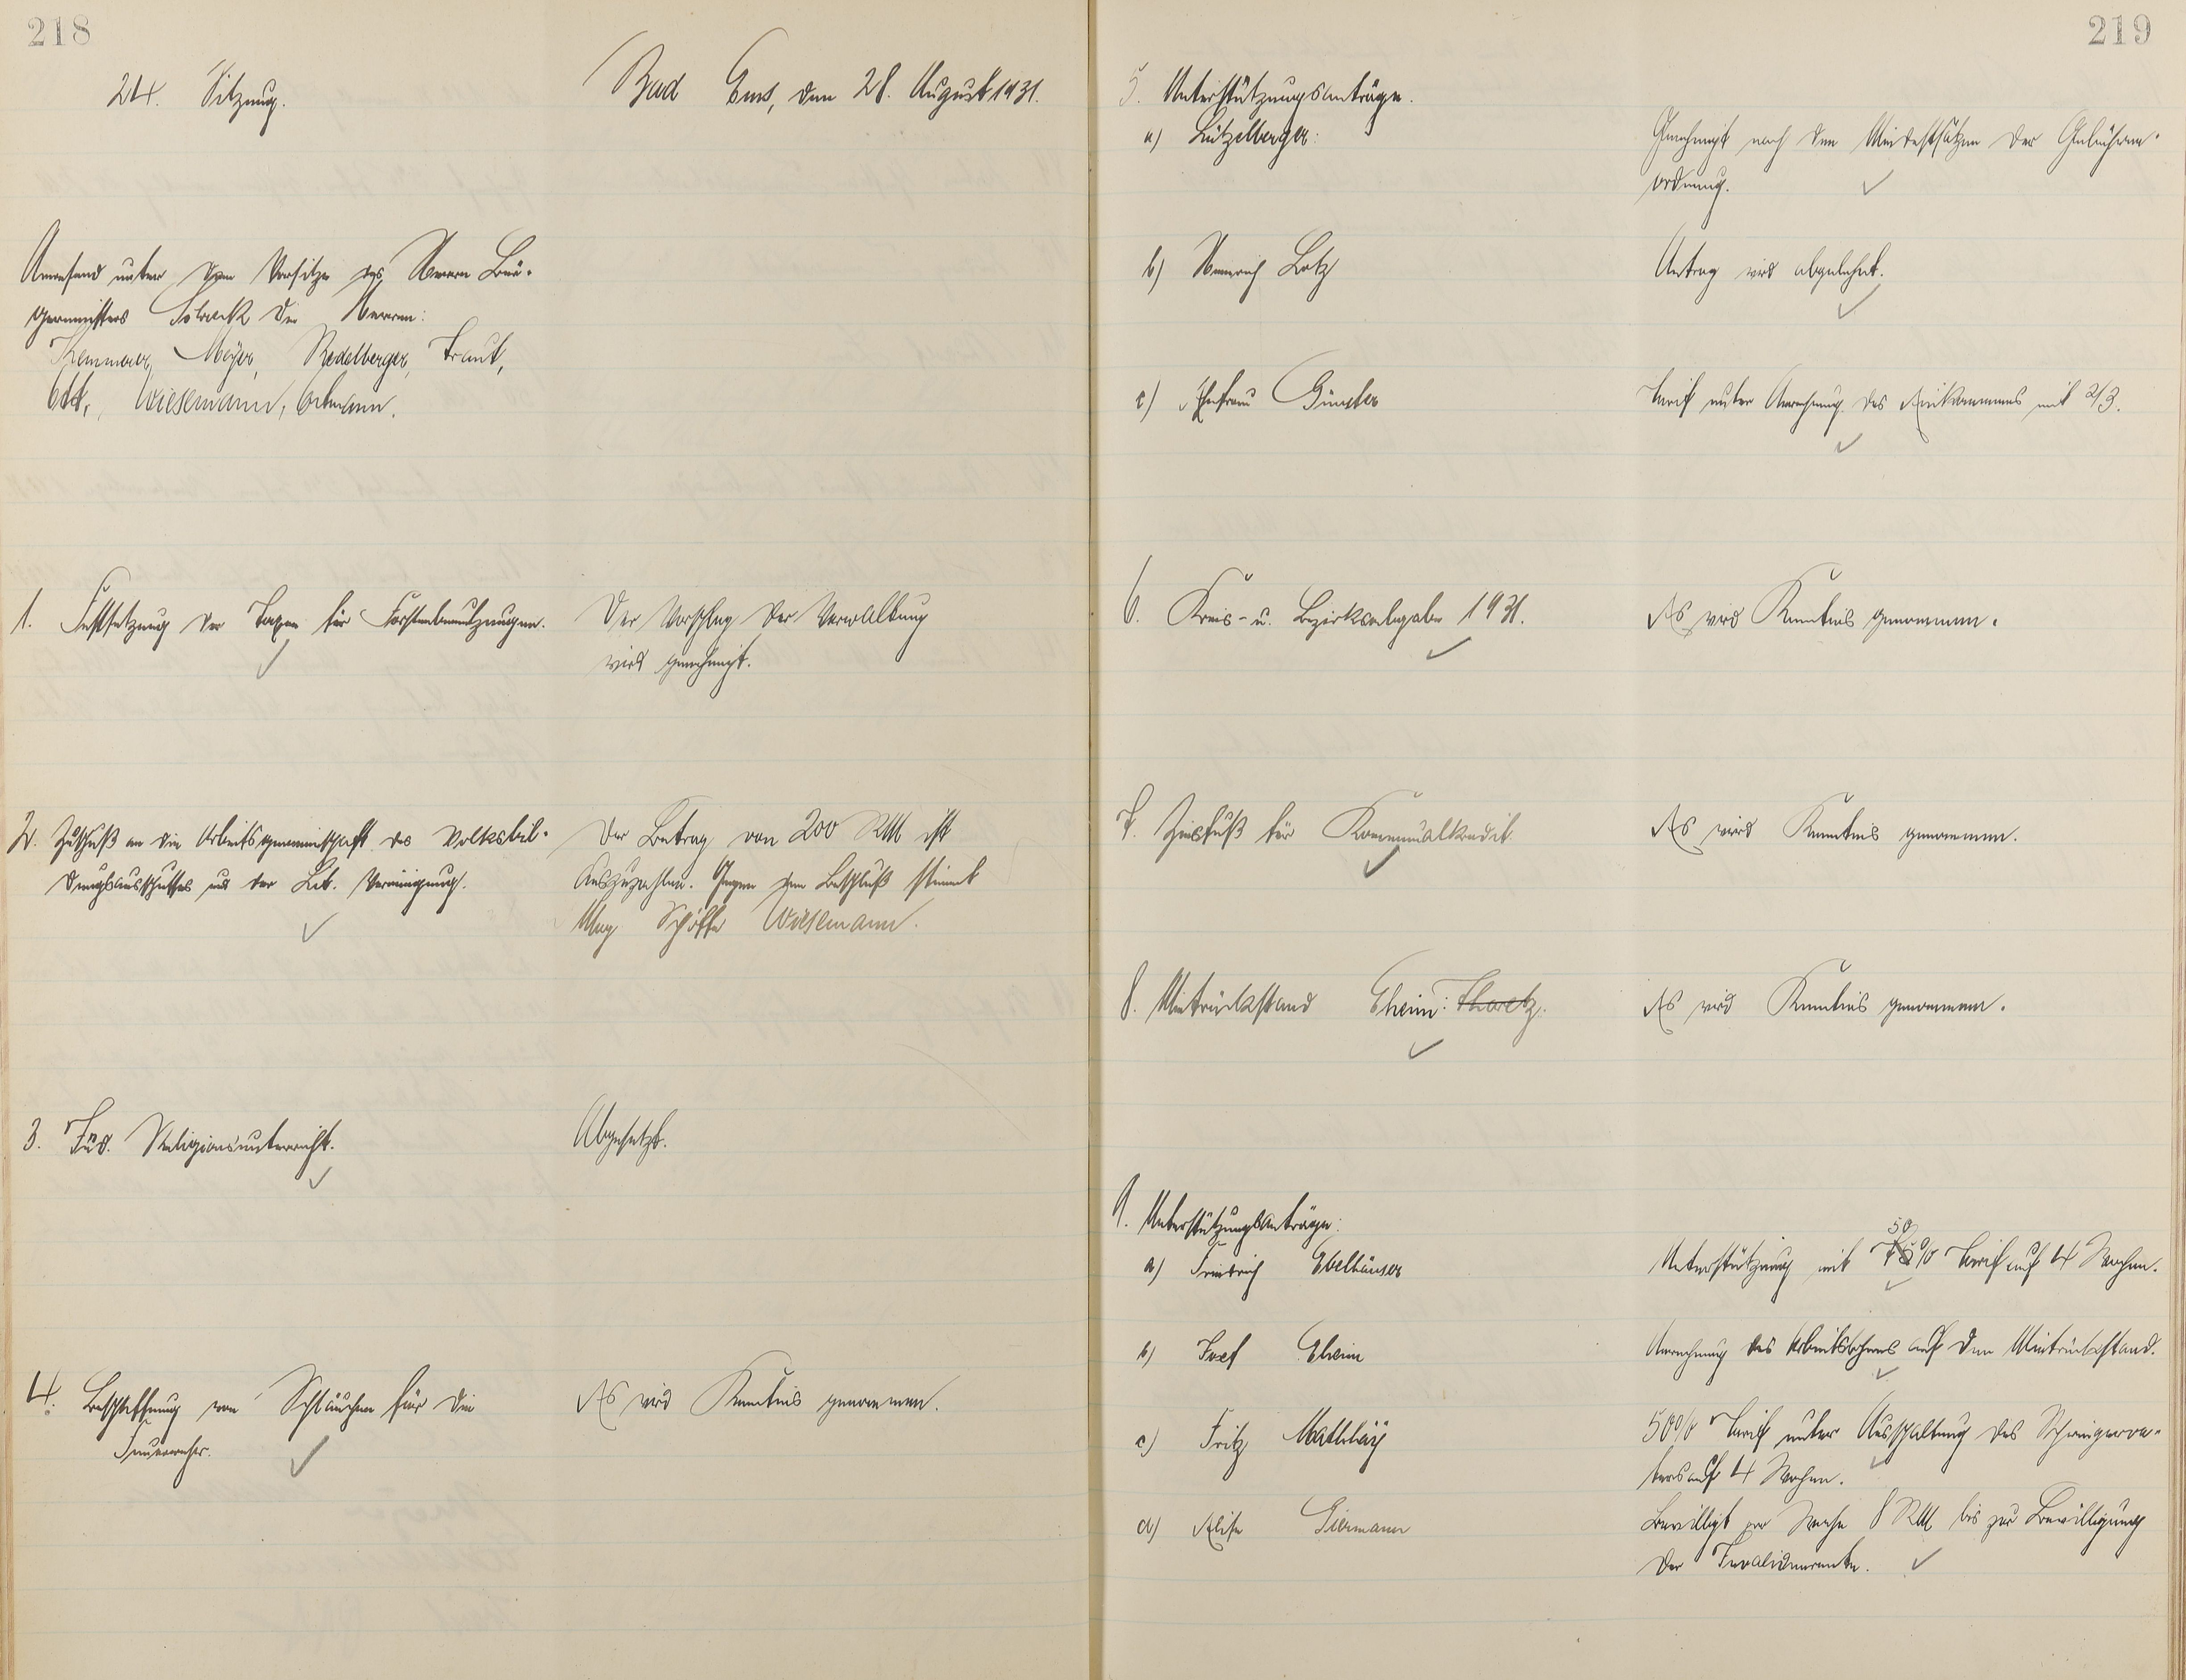 218
24. Sitzung.
Bad Ems, den 28. August 1931.
Anwesend unter dem Vorsitze des Herrn Bür-
germeisters die Herren:
Kemmerer, Meyer, Redelberger, Traut,
Ott, Wiesemann, Ortmann.
1. Festsetzung der Taxen für Forstenbenutzungen.
Der Vorschlag der Verwaltung
wird genehmigt.
2. Zuschuß an die Arbeitsgemeinschaft des Volksbil-
dungsausschusses und der Lit. Vereinigung.
Der Betrag von 200 RM ist
auszuzahlen. Gegen den Beschluß stimmt
Mag. Schöffe Wiesemann.
3. Jüd. Religionsunterricht.
Abgesetzt.
4. Beschaffung von Schläuchen für die
Feuerwehr.
Es wird Kenntnis genommen.
219
5. Unterstützungsanträge.
a) Lützelberger:
Genehmigt nach den Mindestsätzen der Gebühren-
ordnung.
b) Heinrich Lotz
Antrag wird abgelehnt.
c) Ehefrau Günster
Tarif unter Anrechnung des Einkommens mit 2/3.
6. Kreis- u. Bezirksabgabe 1931.
Es wird Kenntnis genommen.
7. Zinsfuß für Kommunalkredit
Es wird Kenntnis genommen.
8. Mietrückstand Eheim: Tharetz.
Es wird Kenntnis genommen.
9. Unterstützungsanträge:
a) Friedrich Ebelhäuser
Unterstützung mit 50 % Tarif auf 4 Wochen.
b) Josef Eheim
Anrechnung des Arbeitslohnes auf den Mietrückstand.
c) Fritz Matthäy
50% Tarif unter Ausschaltung des Schwiegerva-
ters auf 4 Wochen.
d) Elise Giermann
Bewilligt pro Woche 8 RM bis zur Bewilligung
der Invalidenrente.